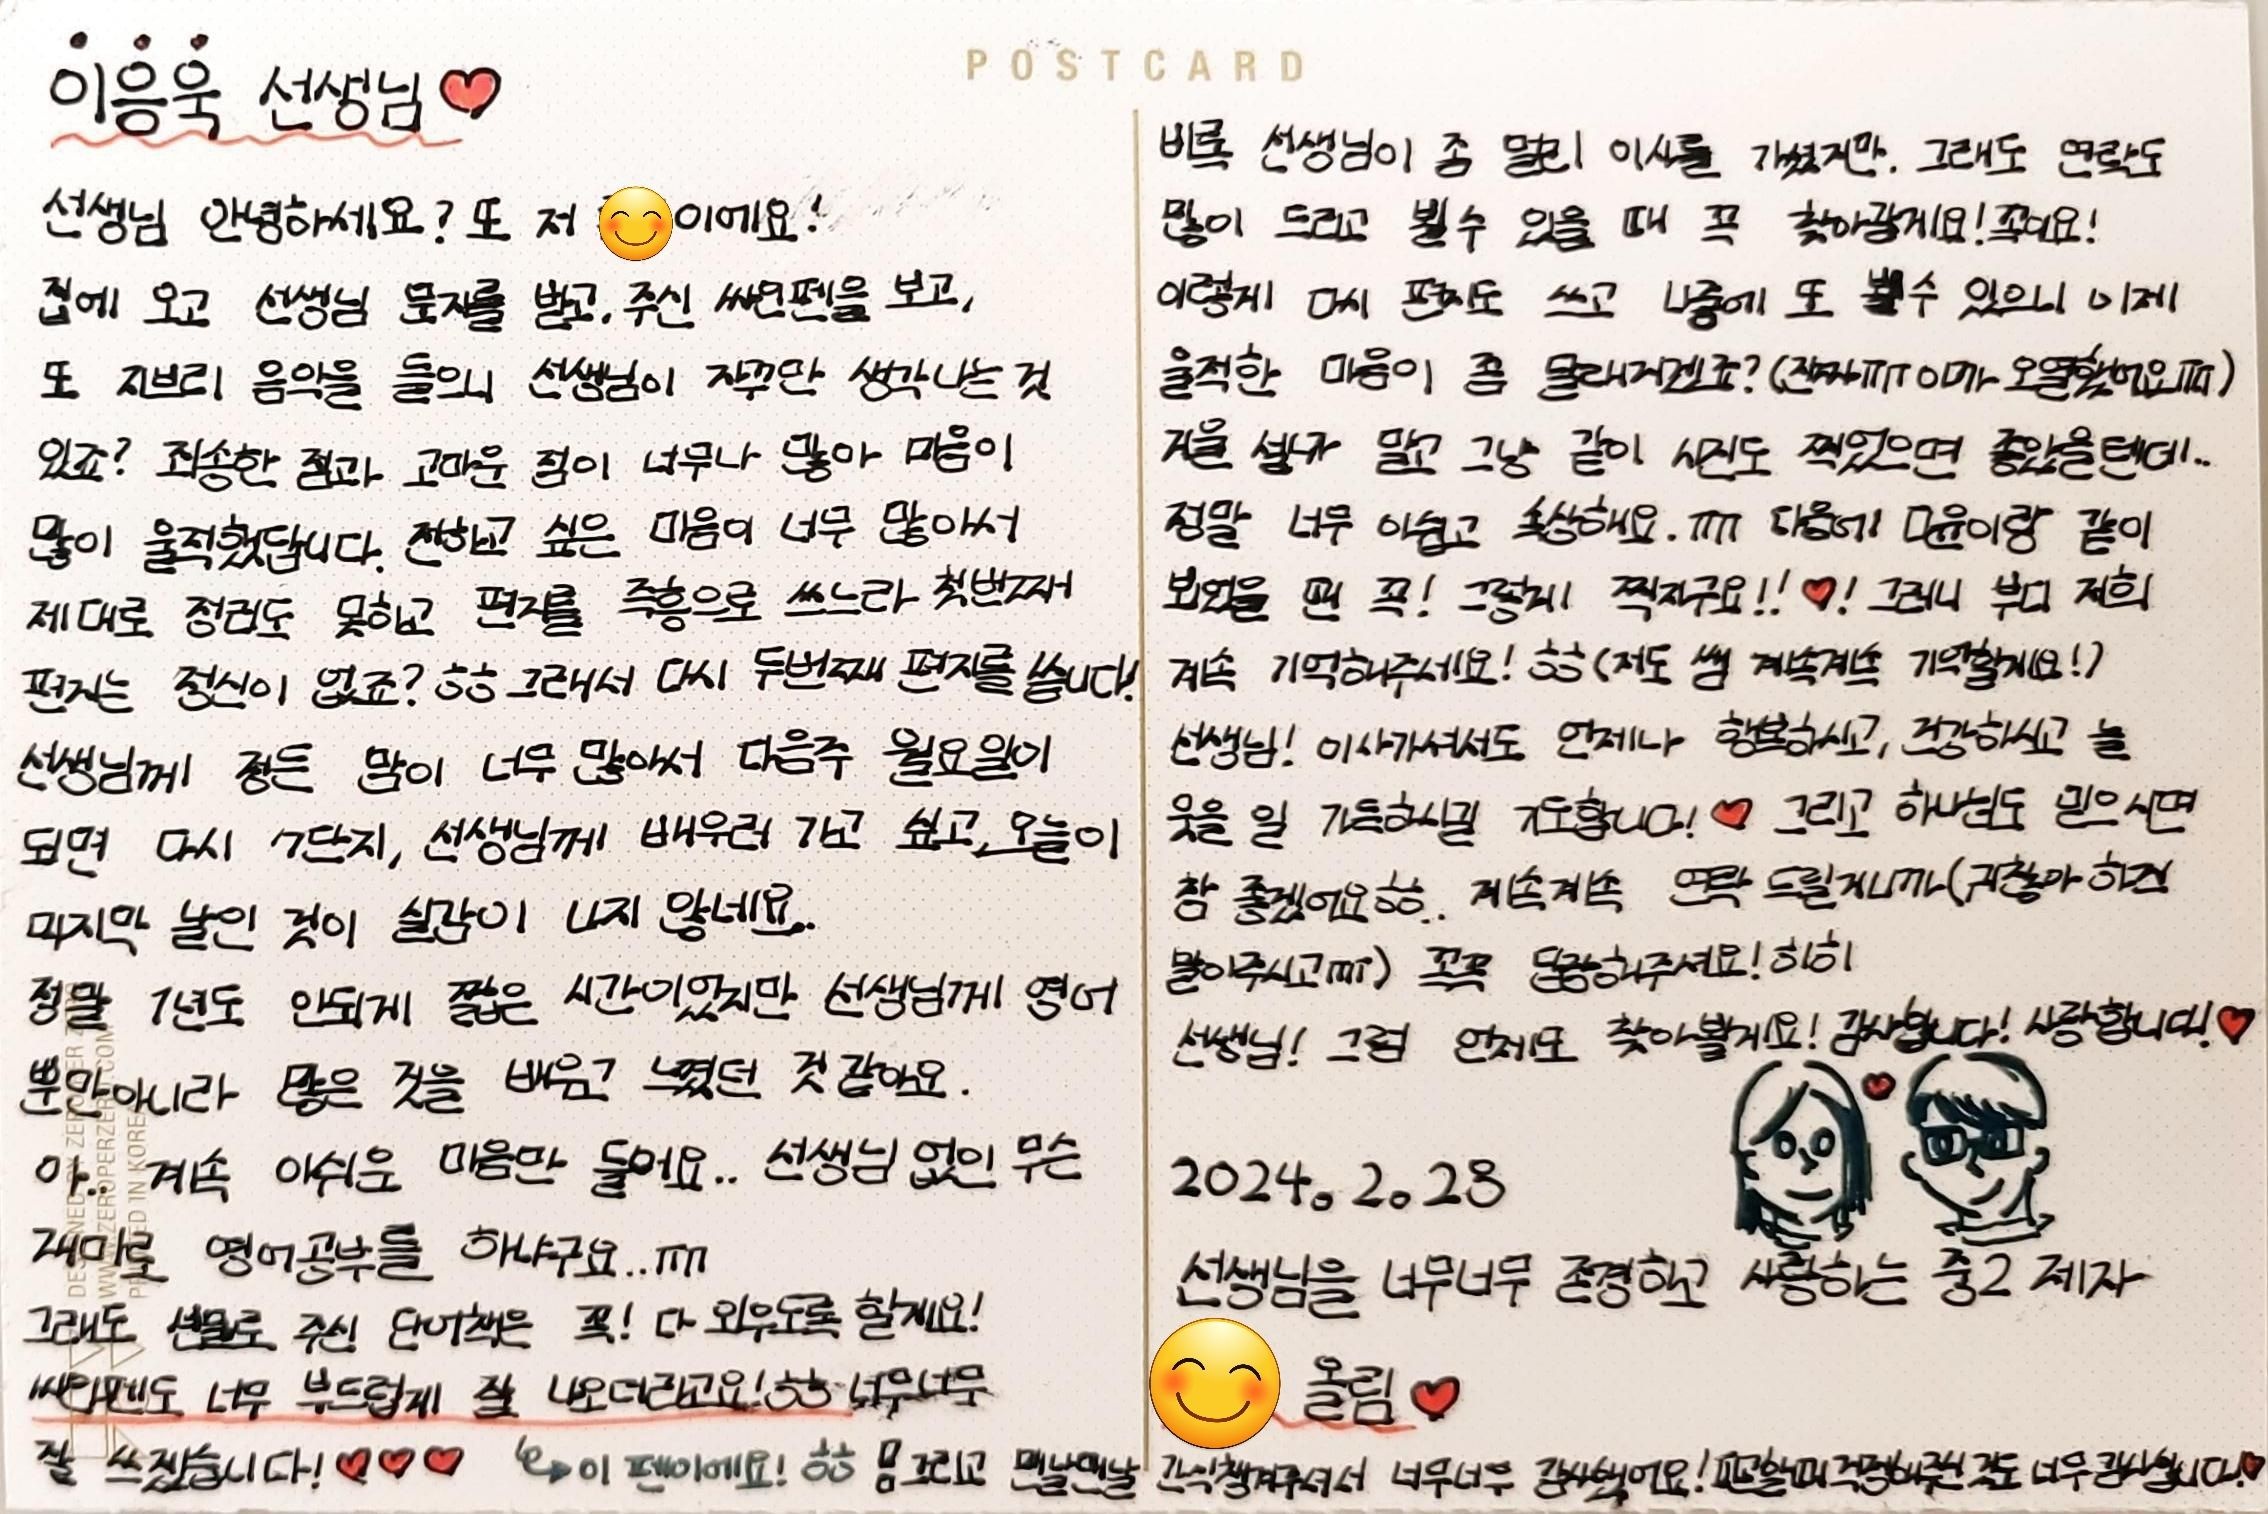 POSTCARD
이응욱 선생님♥
선생님 안녕하세요? 또 저 이에요!
집에 오고 선생님 문자를 받고, 주신 싸인펜을 보고,
또 지브리 음악을 들으니 선생님이 자꾸만 생각나는 것
있죠? 죄송한 점과 고마운 점이 너무나 많아 마음이
많이 울적했답니다. 전하고 싶은 마음이 너무 많아서
제대로 정리도 못하고 편지를 즉흥으로 쓰느라 첫번째
편지는 정신이 없죠? ㅎㅎ 그래서 다시 두번째 편지를 씁니다!
선생님께 정든 맘이 너무 많아서 다음주 월요일이
되면 다시 7단지, 선생님께 배우러 가고 싶고, 오늘이
마지막 날인 것이 실감이 나지 않네요..
정말 1년도 안되게 짧은 시간이었지만 선생님께 영어
뿐만아니라 많은 것을 배우고 느꼈던 것 같아요.
아.. 계속 아쉬운 마음만 들어요.. 선생님 없인 무슨
재미로 영어공부를 하냐구요..ㅠㅠ
그래도 선물로 주신 단어책은 꼭! 다 외우도록 할게요!
싸인펜도 너무 부드럽게 잘 나오더라고요!ㅎㅎ 너무너무
잘 쓰겠습니다!♥♥♥ 이 펜이에요! ㅎㅎ 그리고 맨날맨날 간식챙겨주셔서 너무너무 감사했어요! 걱정해주신것도 너무 감사합니다!♥
비록 선생님이 좀 멀리 이사를 가셨지만, 그래도 연락도
많이 드리고 뵐수 있을 때 꼭 찾아갈게요! 꼭이요!
이렇게 다시 편지도 쓰고 나중에 또 뵐수 있으니 이제
울적한 마음이 좀 달래지겠죠? (진짜ㅠㅠ 아까 오열했어요ㅠㅠ)
말고 그냥 같이 사진도 찍었으면 좋았을텐데..
정말 너무 아쉽고 속상해요.ㅠㅠ 다음에 다윤이랑 같이
뵈었을 땐 꼭! 그렇게 찍자구요!! ♥! 그러니 부디 저희
계속 기억해주세요! ㅎㅎ (저도 쌤 계속계속 기억할게요!)
선생님! 이사가셔서도 언제나 행복하시고, 건강하시고 늘
웃을 일 가득하시길 기도합니다! ♥ 그리고 하나님도 믿으시면
참 좋겠어요ㅎㅎ.. 계속계속 연락 드릴거니까 (귀찮아 하진
말아주시고ㅠㅠ) 꼬옥 답장해주셔요! 히히
선생님! 그럼 언제또 찾아뵐게요! 감사합니다! 사랑합니다!♥
2024. 2. 23
선생님을 너무너무 존경하고 사랑하는 중2 제자
올림♥
WWW.ZEROPERZERO.COM